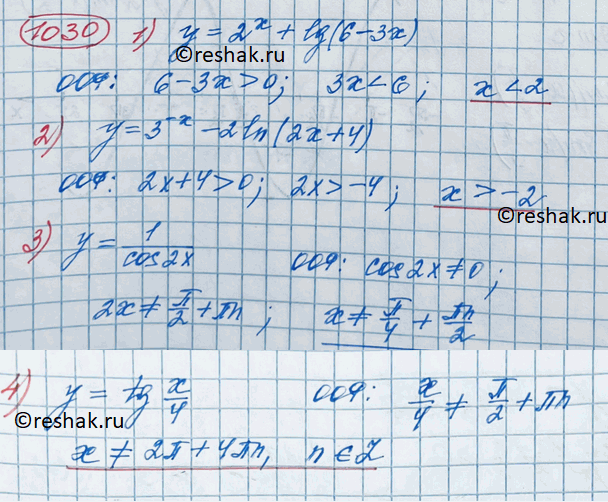 1030 1) y = 2^x + lg(6-3x)
©reshak.ru
ООФ: 6-3x>0; 3x<6; x<2
2) y=3^{-x} -2ln(2x+4)
ООФ: 2x+4>0; 2x>-4; x>-2
©reshak.ru
3) y = 1/cos2x ООФ: cos2x≠0;
2x≠π/2+πn; x≠π/4+πn/2
©reshak.ru
4) y = tg x/4 ООФ: x/4 ≠ π/2+πn
©reshak.ru
x≠2π+4πn, n∈Z